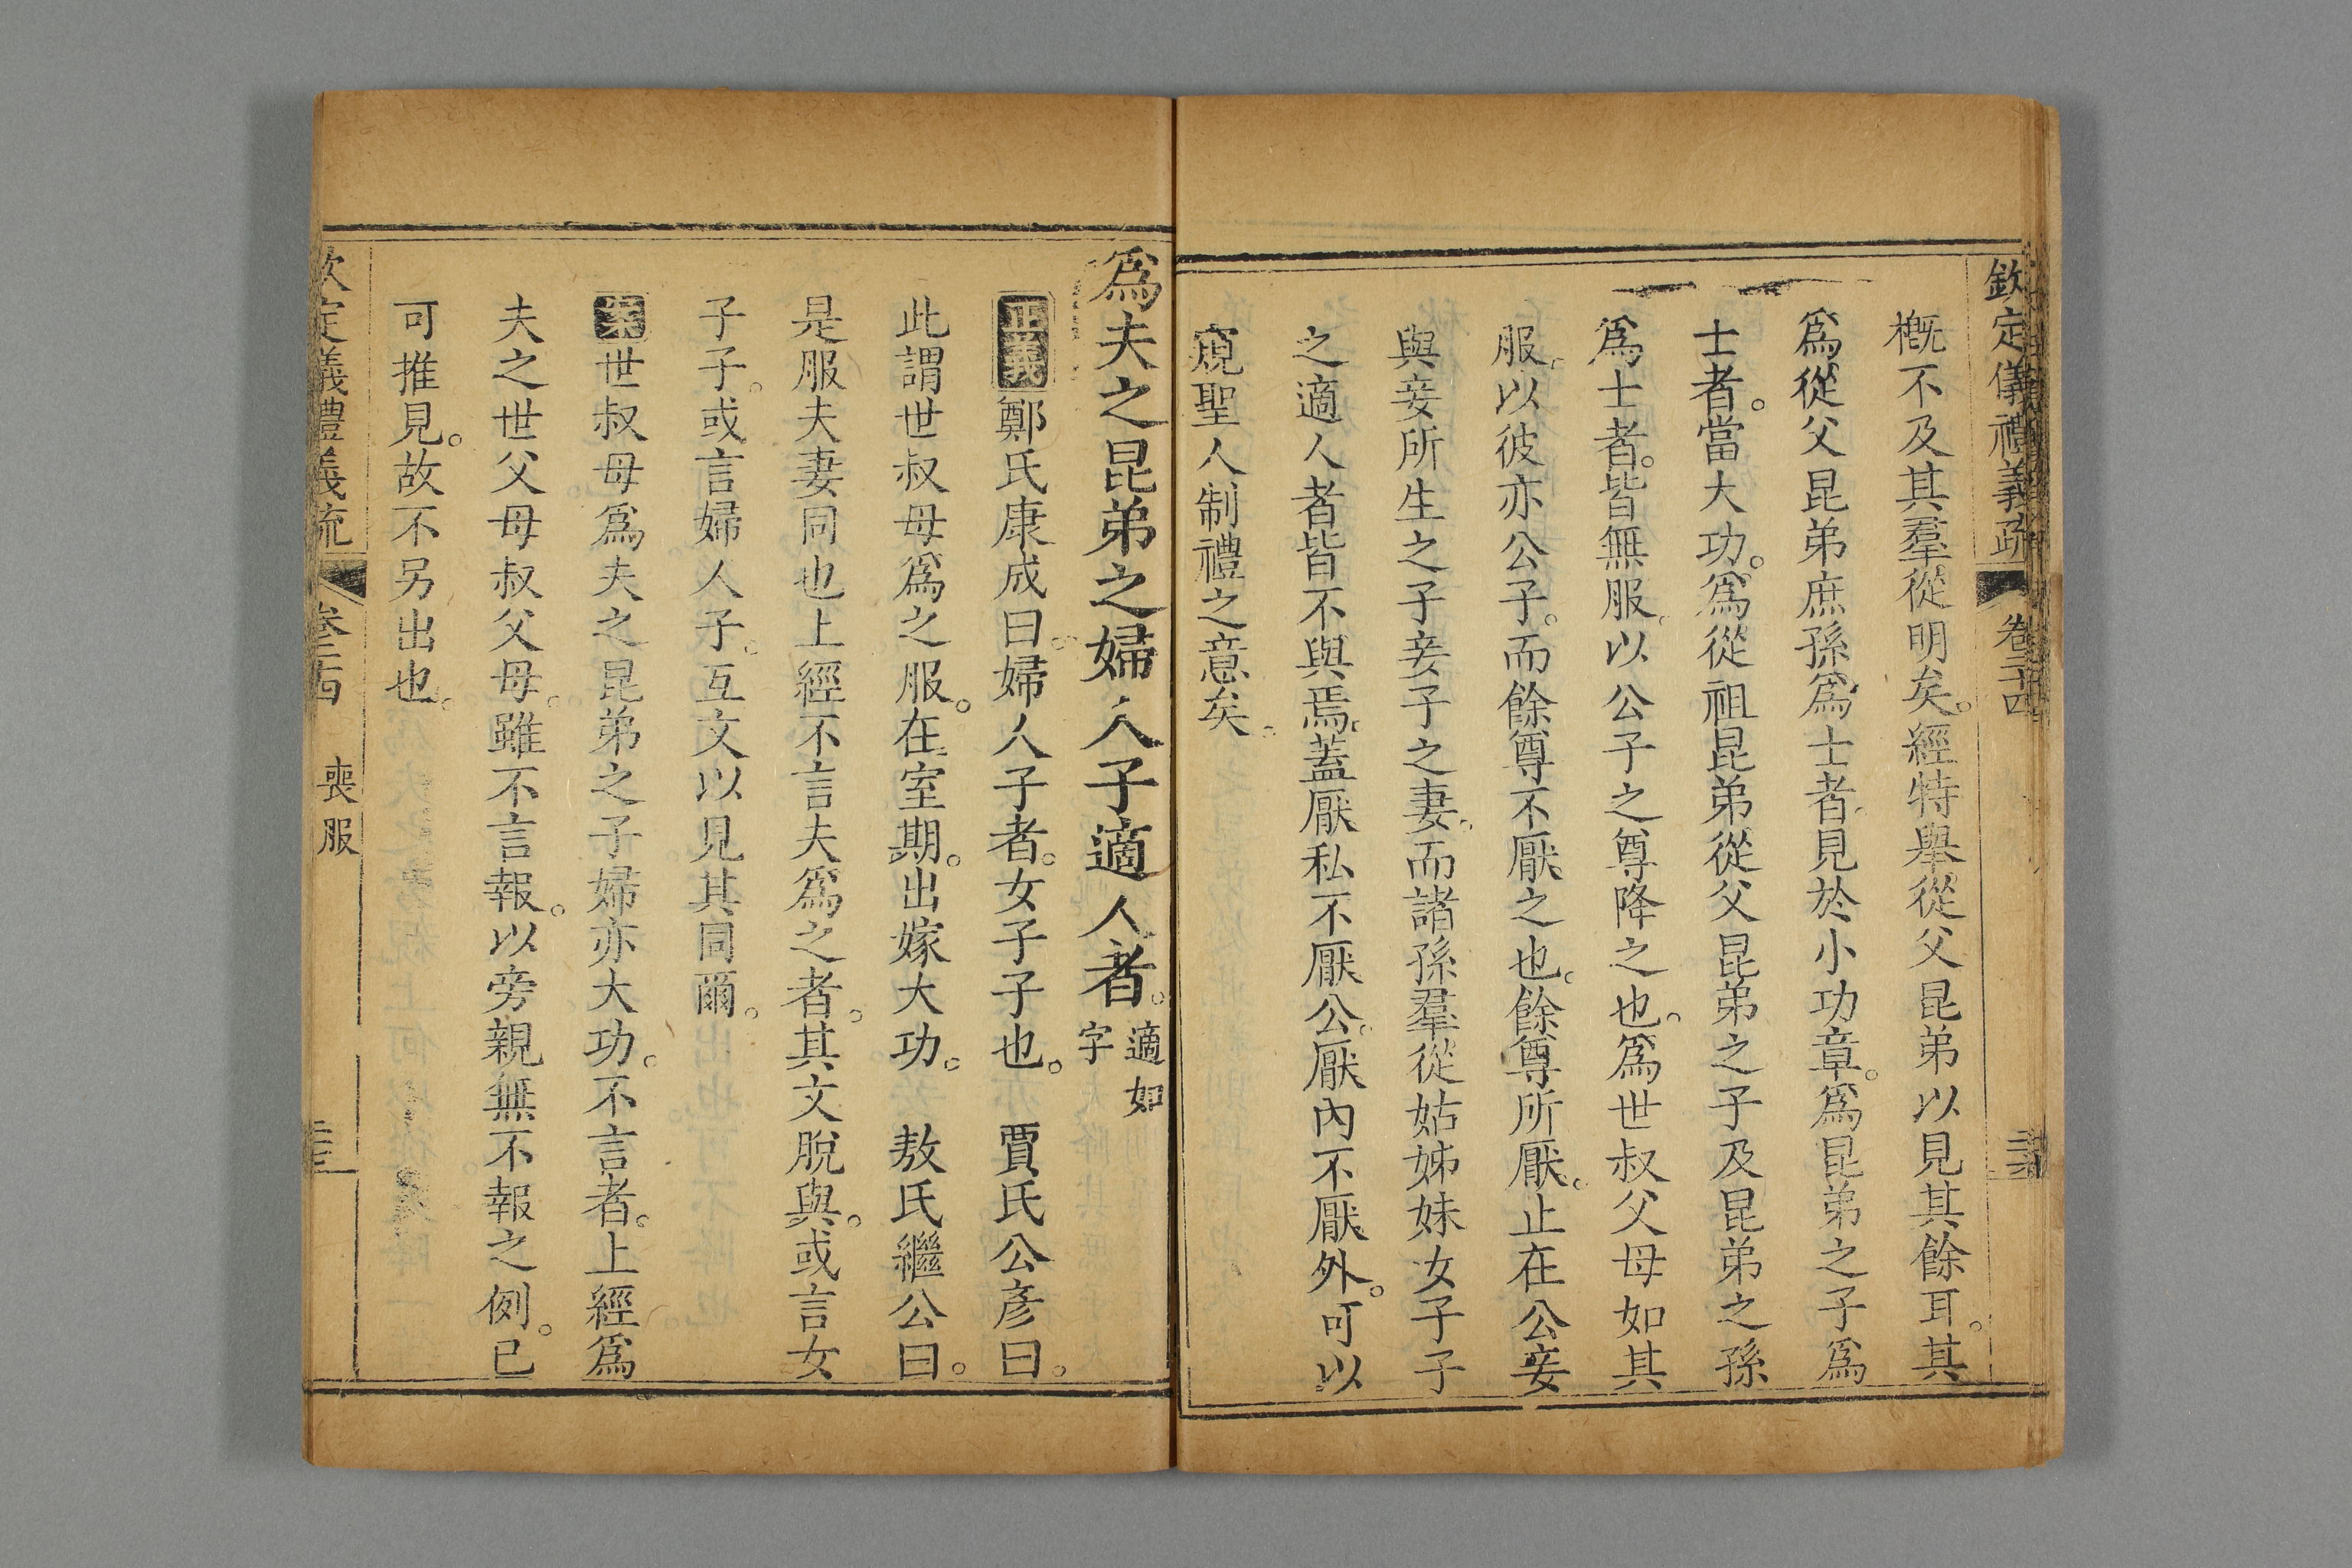 欽定儀禮義疏 卷二十四
概不及其羣從明矣。經特舉從父昆弟以見其餘耳。其
爲從父昆弟庶孫爲士者。見於小功章。爲昆弟之子爲
士者。當大功。爲從祖昆弟從父昆弟之子及昆弟之孫
爲士者。皆無服。以公子之尊降之也。爲世叔父母如其
服。以彼亦公子。而餘尊不厭之也。餘尊所厭。止在公妾
與妾所生之子妾子之妻。而諸孫羣從姑姊妹女子子
之適人者皆不與焉。蓋厭私不厭公。厭內不厭外。可以
窺聖人制禮之意矣。
爲夫之昆弟之婦人子適人者。適如字
正義鄭氏康成曰。婦人子者。女子子也。 賈氏公彥曰。
此謂世叔母爲之服。在室期。出嫁大功。 敖氏繼公曰。
是服夫妻同也上經不言夫爲之者。其文脫與。或言女
子子。或言婦人子。互文以見其同爾。
案世叔母爲夫之昆弟之子婦亦大功。不言者。上經爲
夫之世父母叔父母。雖不言報。以旁親無不報之例。已
可推見。故不另出也。
欽定儀禮義疏 卷二十四 喪服